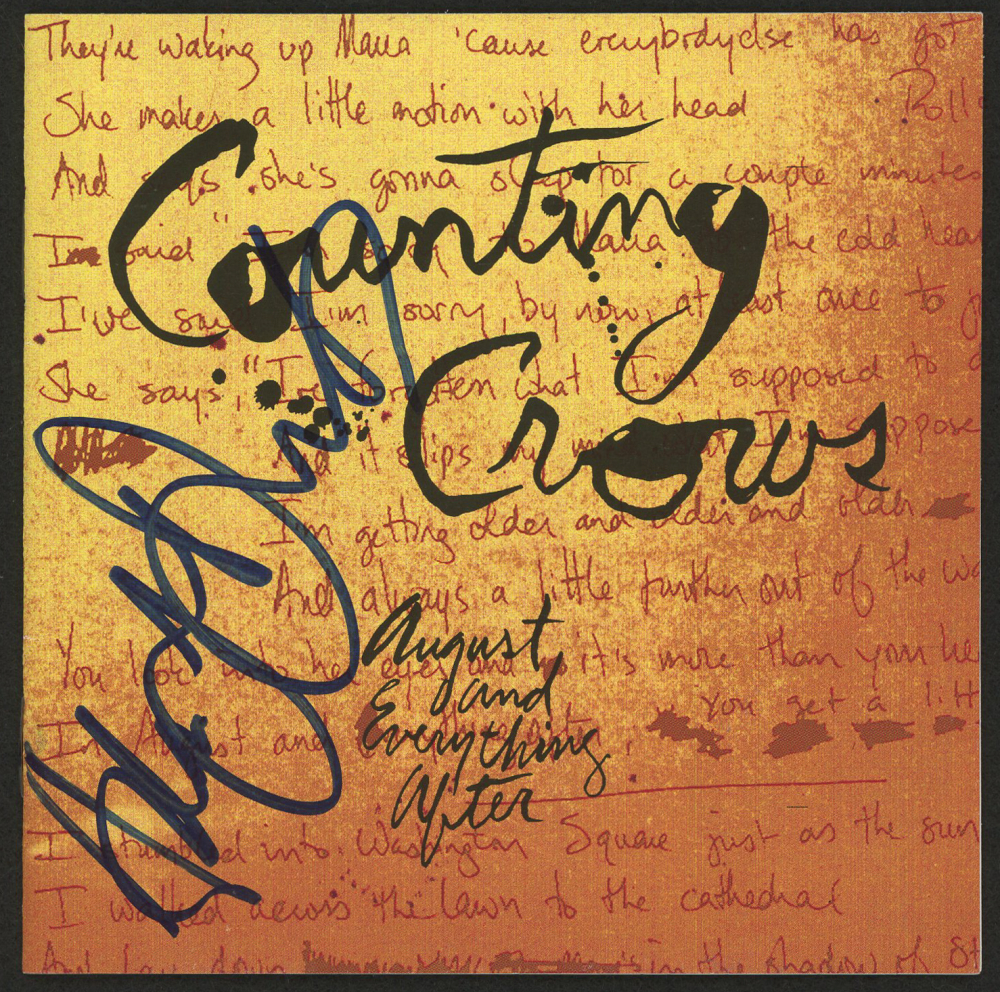 They're waking up Maria 'cause everybody else has got
She makes a little motion with her head
Roll
And says she's gonna sleep for a couple minutes
Counting
I said "I'm sorry" to Maria the cold hear
I've said I'm sorry, by now, at least once to
Crows
She says, "I've forgotten what I'm supposed to
And it slips my mind what I'm suppose
I'm getting older and older and older
And always a little further out of the wa
August
and
Everything
After
You look into her eyes and it's more than your he
you get a litt
In August and
I stumbled into Washington Square just as the sun
I walked across the lawn to the cathedral
And lay down in the shadow of St